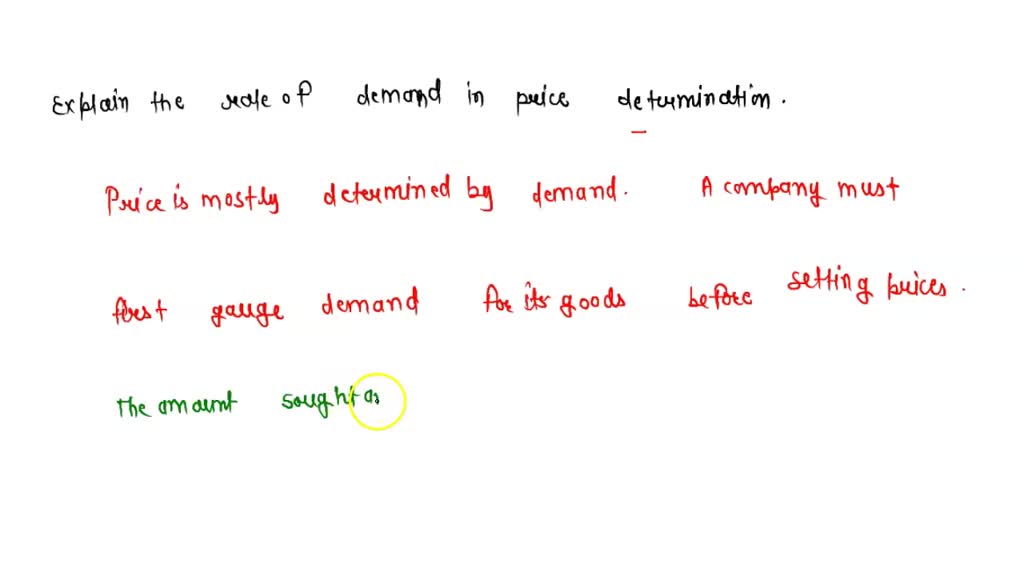 Explain the role of demand in price determination.
Price is mostly determined by demand. A company must
first gauge demand for its goods before setting prices.
the amount sought as